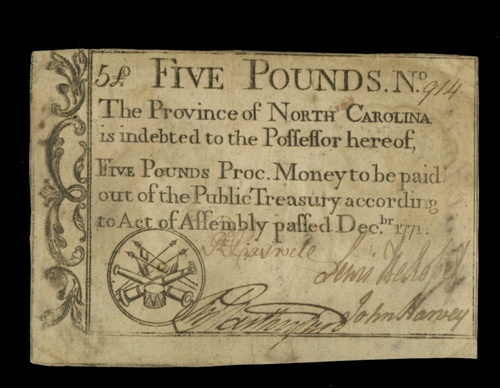 5£. FIVE POUNDS. No. 914
The Province of NORTH CAROLINA
is indebted to the Poſſeſſor hereof,
FIVE POUNDS Proc. Money to be paid
out of the Public Treasury according
to Act of Aſſembly paſſed Dec.br 1771.
Rd Caswell
Lewis DeRosset
John Harvey